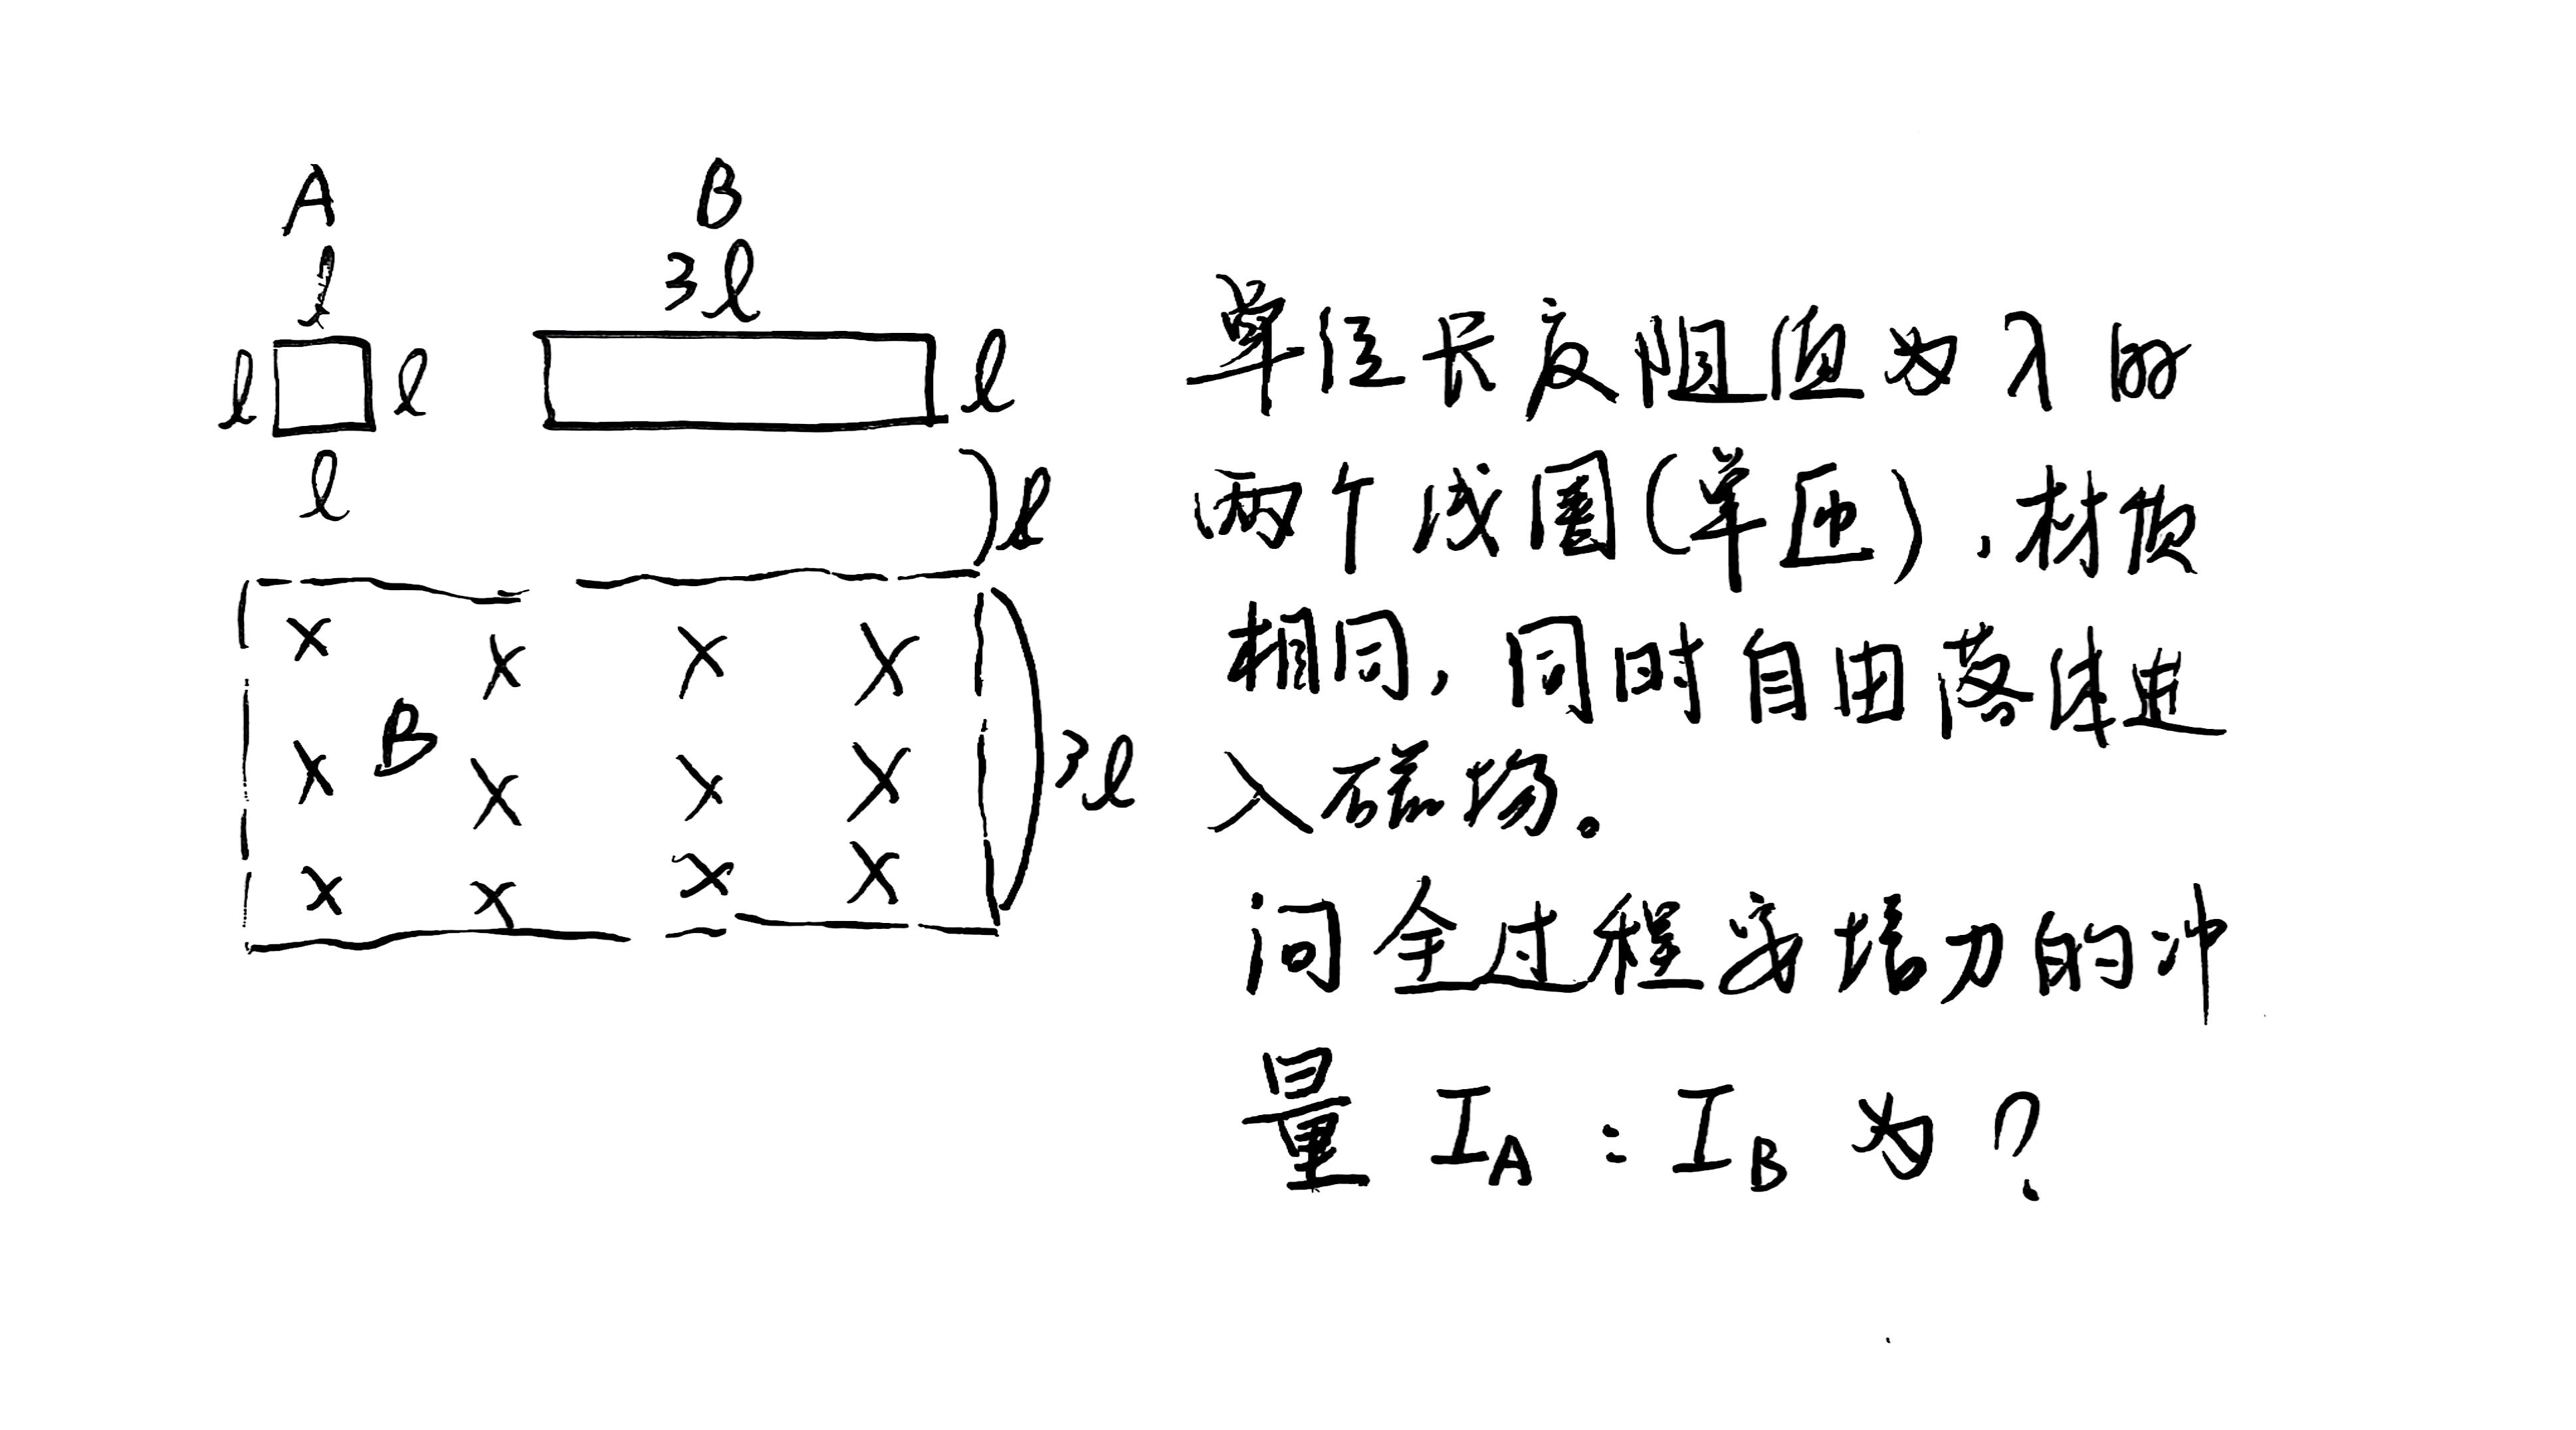 A
B
l
3l
l
l
l
l
l
B
3l
单位长度阻值为λ的
两个线圈(单匝),材质
相同,同时自由落体进
入磁场。
问全过程安培力的冲
量 I_A : I_B 为?